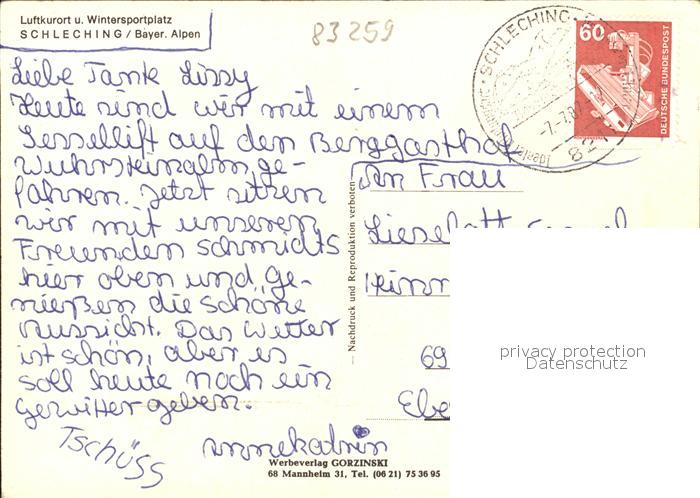 Luftkurort u. Wintersportplatz
SCHLECHING / Bayer. Alpen
83259
SCHLECHING
60
DEUTSCHE BUNDESPOST
821
Liebe Tante Lissy
Heute sind wir mit einem
Sessellift auf den Berggasthof
Wuhrsteinalm ge-
fahren. Jetzt sitzen
wir mit unseren
Freunden Schmidts
hier oben und ge-
nießen die schöne
Aussicht. Das Wetter
ist schön, aber es
soll heute noch ein
Gewitter geben.
Tschüss
Annekatrin
An Frau
69
Nachdruck und Reproduktion verboten
privacy protection
Datenschutz
Werbeverlag GORZINSKI
68 Mannheim 31, Tel. (06 21) 75 36 95